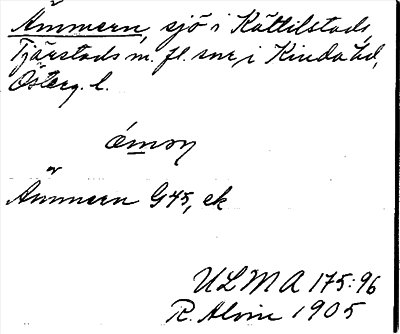 Ämmern, sjö i Kättilstads,
Tjärstads m. fl. snr, i Kinda hd,
Österg. l.
ámən
Ämmern G45, ek
ULMA 175:96
R. Alvin 1905